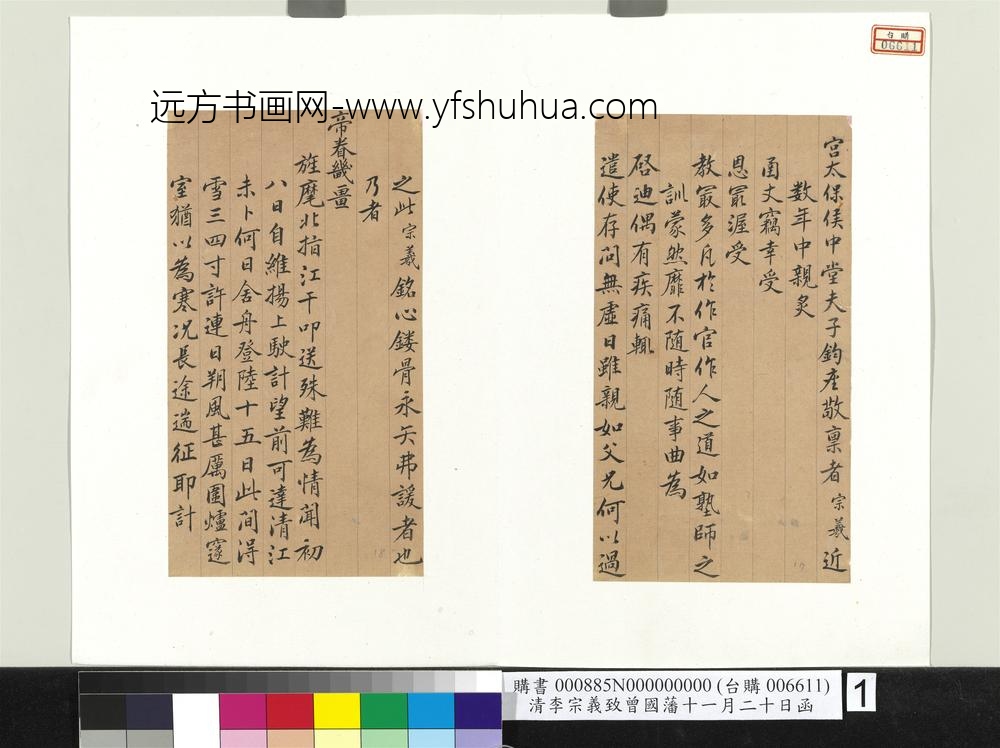 远方书画网-www.yfshuhua.com
台購
006611
宮太保侯中堂夫子鈞座敬稟者宗羲近
數年中親炙
函丈竊幸受
恩最渥受
教最多凡於作官作人之道如塾師之
訓蒙然靡不隨時隨事曲為
啓迪偶有疾痛輒
遣使存問無虛日雖親如父兄何以過
之此宗羲銘心鏤骨永矢弗諼者也
乃者
帝眷畿畺
旌麾北指江干叩送殊難為情聞初
八日自維揚上駛計望前可達清江
未卜何日舍舟登陸十五日此間得
雪三四寸許連日朔風甚厲圍爐邃
室猶以為寒况長途遄征耶計
17
18
購書 000885N000000000 (台購 006611)
清李宗義致曾國藩十一月二十日函
1